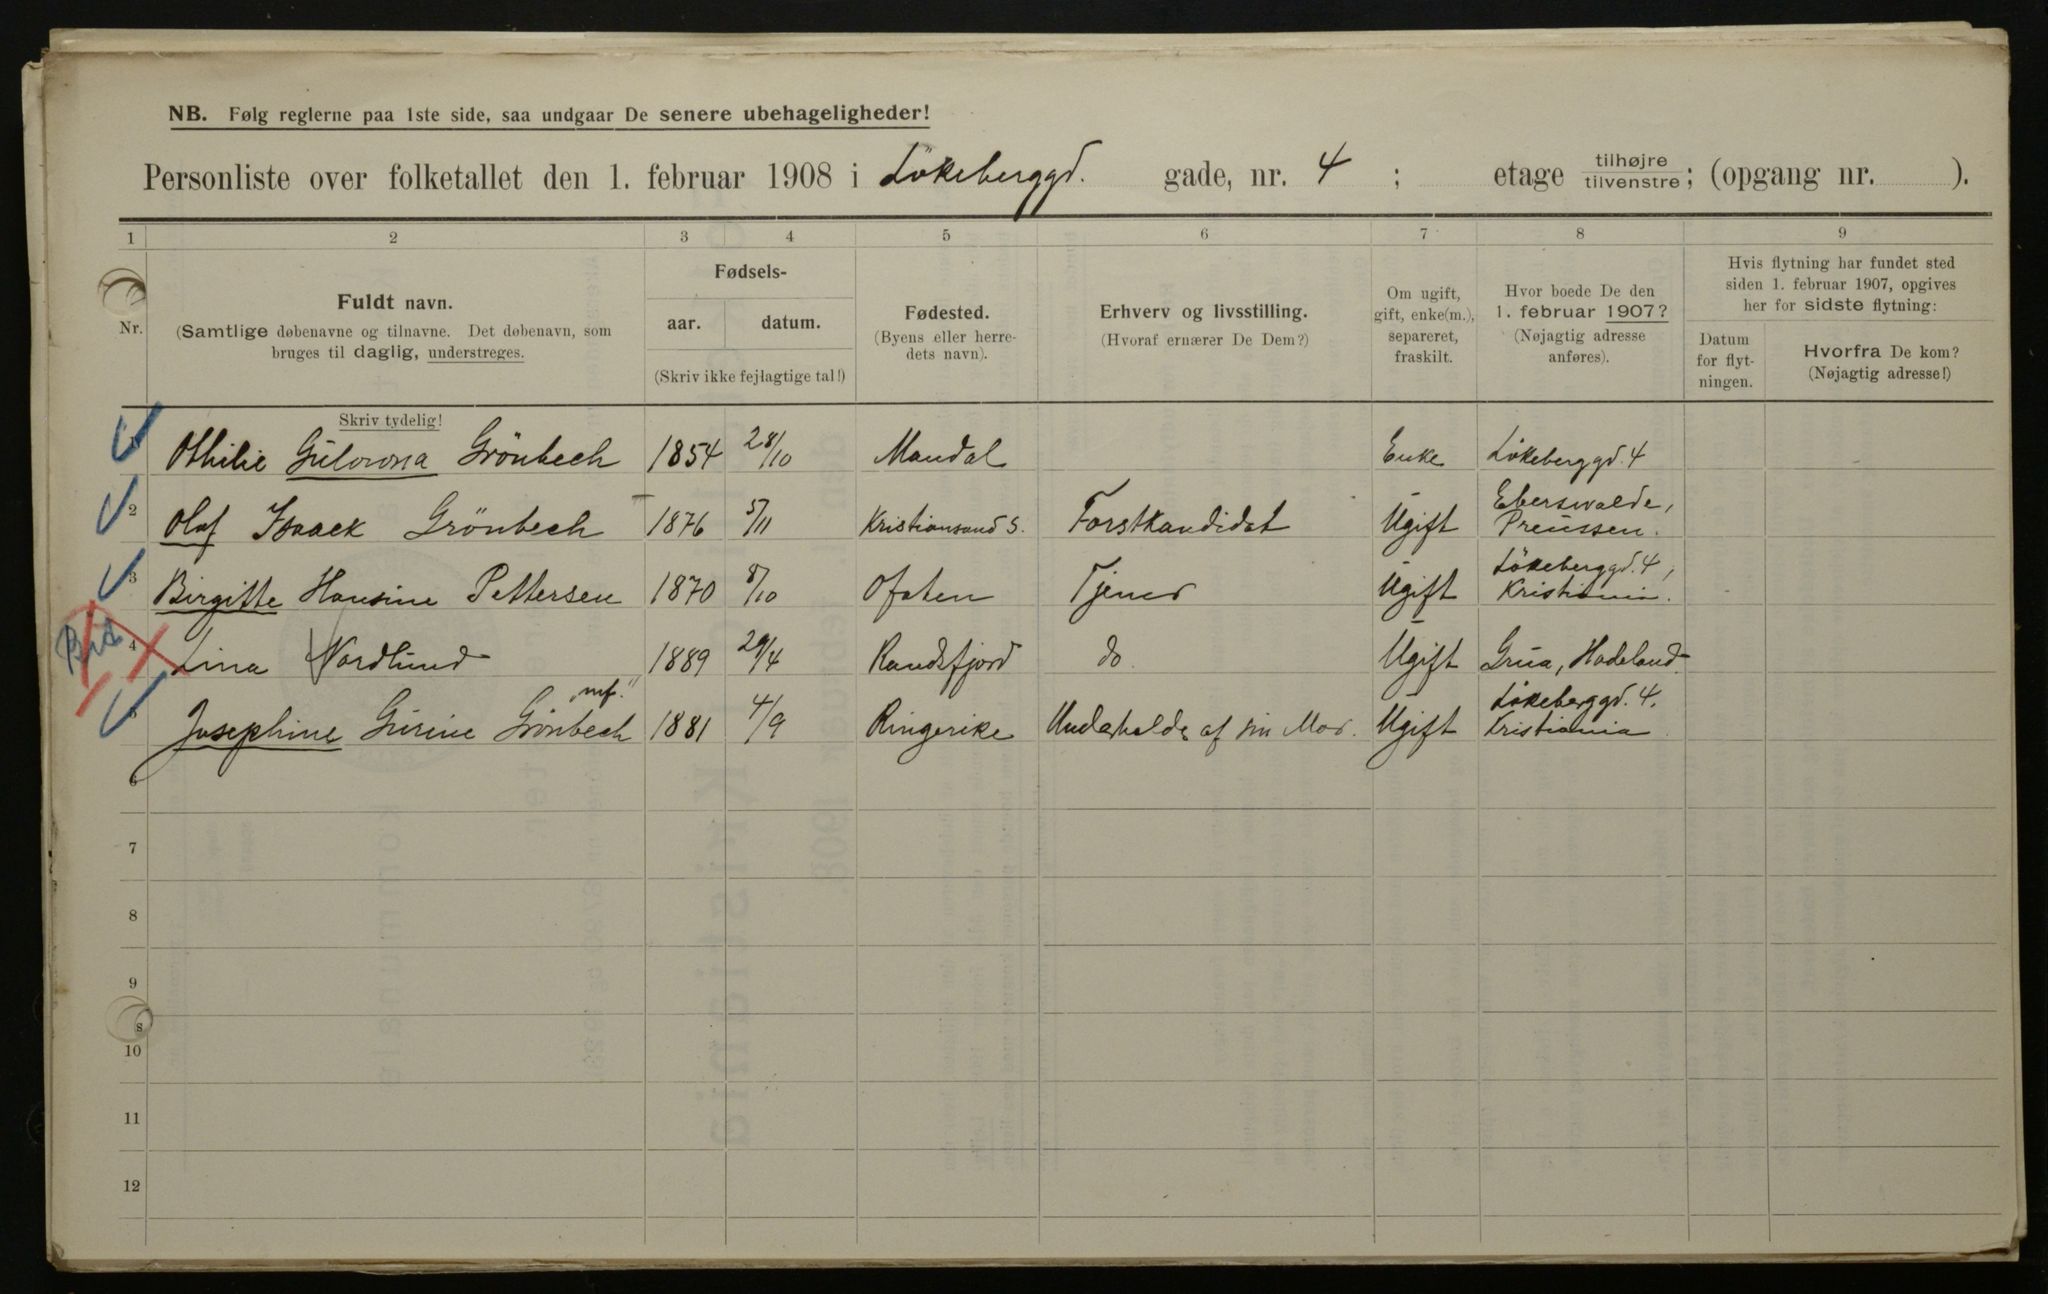 NB. Følg reglerne paa 1ste side, saa undgaar De senere ubehageligheder!
Personliste over folketallet den 1. februar 1908 i Lökeberggd. gade, nr. 4 ; etage tilhøjre/tilvenstre; (opgang nr. ).
1 2 3 4 5 6 7 8 9
Nr.
Fuldt navn.
(Samtlige døbenavne og tilnavne. Det døbenavn, som
bruges til daglig, understreges.
Fødsels-
aar. datum.
(Skriv ikke fejlagtige tal!)
Fødested.
(Byens eller herre-
dets navn).
Erhverv og livsstilling.
(Hvoraf ernærer De Dem?)
Om ugift,
gift, enke(m.),
separeret,
fraskilt.
Hvor boede De den
1. februar 1907?
(Nøjagtig adresse
anføres).
Hvis flytning har fundet sted
siden 1. februar 1907, opgives
her for sidste flytning:
Datum
for flyt-
ningen.
Hvorfra De kom?
(Nøjagtig adresse!)
Skriv tydelig!
1 Othilie Grönbech 1854 28/10 Mandal Enke Lökeberggd. 4
2 Olaf Isaack Grönbech 1876 5/11 Kristiansand S. Forstkandidat Ugift Eberswalde,
Preussen.
3 Birgitte Hansine Pettersen 1870 8/10 Ofoten Tjener Ugift Lökeberggd. 4,
Kristiania.
4 Lina Nordlund 1889 29/4 Randsfjord do Ugift Grua, Hadeland
5 Josephine Gurine Grönbech 1881 4/9 Ringerike Underholdes af sin Mor. Ugift Lökeberggd. 4.
Kristiania
6
7
8
9
s
10
11
12